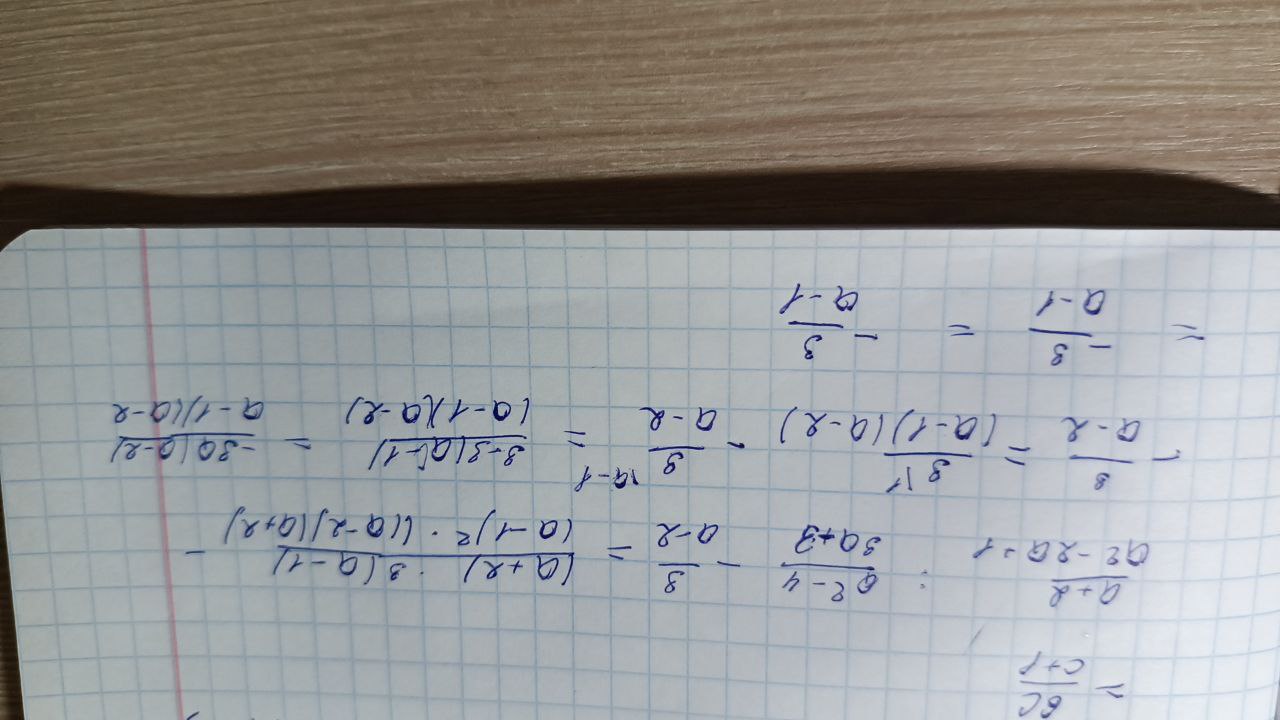 = 6c/(c+1)
(a+2)/(a²-2a+1) : (a²-4)/(3a+3) - 3/(a-2) = ((a+2) · 3(a-1))/((a-1)² · ((a-2)(a+2)) -
- 3/(a-2) = 3\1/((a-1)(a-2)) - 3\a-1/(a-2) = (3-3(a-1))/((a-1)(a-2)) = (-3a(a-2))/(a-1)(a-2
= -3/(a-1) = -3/(a-1)